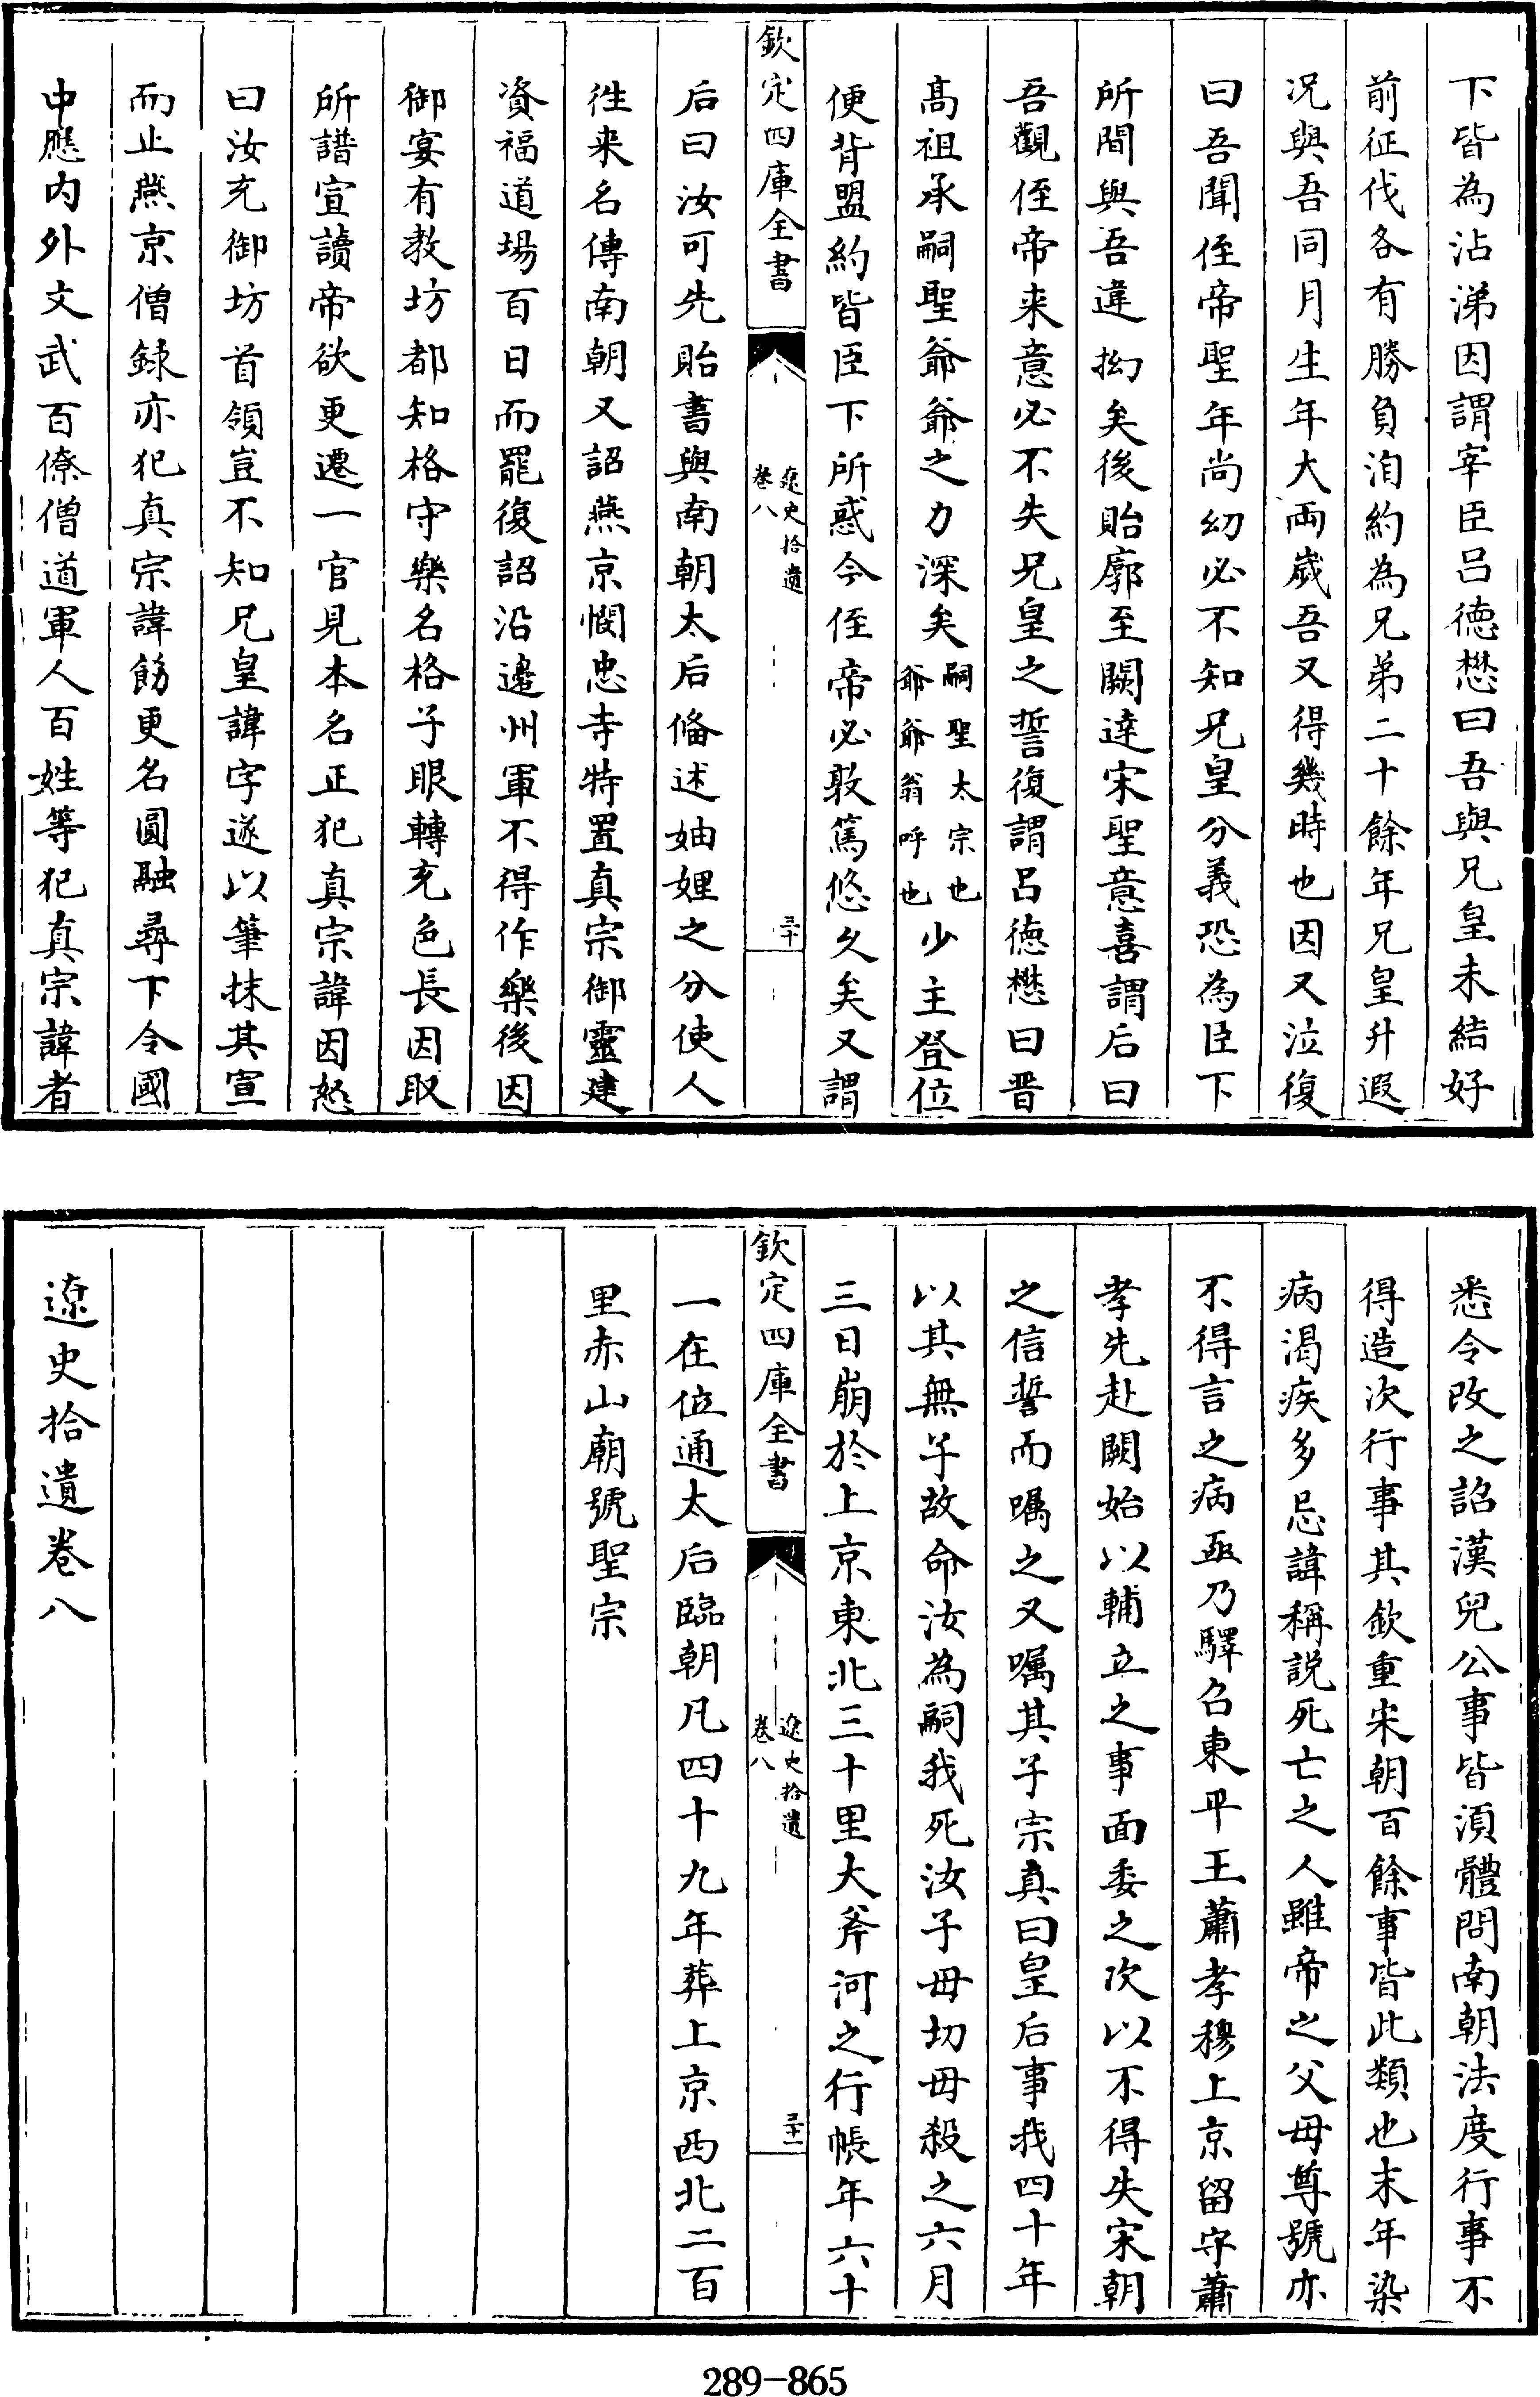 下皆為沾涕因謂宰臣呂徳懋曰吾與兄皇未結好
前征伐各有勝負洎約為兄弟二十餘年兄皇升遐
况與吾同月生年大兩嵗吾又得幾時也因又泣復
曰吾聞侄帝聖年尚幼必不知兄皇分義恐為臣下
所間與吾違拗矣後貽廓至闕達宋聖意喜謂后曰
吾觀侄帝来意必不失兄皇之誓復謂呂徳懋曰晋
髙祖承嗣聖爺爺之力深矣嗣聖太宗也爺爺翁呼也少主登位
便背盟約皆臣下所惑今侄帝必敦篤悠久矣又謂
欽定四庫全書
遼史拾遺
卷八
三十
后曰汝可先貽書與南朝太后俻述妯娌之分使人
徃来名傳南朝又詔燕京憫忠寺特置真宗御靈建
資福道場百日而罷復詔沿邉州軍不得作樂後因
御宴有教坊都知格守樂名格子眼轉充色長因取
所譜宣讀帝欲更遷一官見本名正犯真宗諱因怒
曰汝充御坊首領豈不知兄皇諱字遂以筆抹其宣
而止燕京僧録亦犯真宗諱飭更名圓融尋下令國
中應内外文武百僚僧道軍人百姓等犯真宗諱者
悉令改之詔漢兒公事皆湏體問南朝法度行事不
得造次行事其欽重宋朝百餘事皆此類也末年染
病渴疾多忌諱稱説死亡之人雖帝之父母尊號亦
不得言之病亟乃驛召東平王蕭孝穆上京留守蕭
孝先赴闕始以輔立之事面委之次以不得失宋朝
之信誓而囑之又嘱其子宗真曰皇后事我四十年
以其無子故命汝為嗣我死汝子母切毋殺之六月
三日崩於上京東北三十里大斧河之行帳年六十
欽定四庫全書
遼史拾遺
卷八
三十一
一在位通太后臨朝凡四十九年葬上京西北二百
里赤山廟號聖宗
遼史拾遺卷八
289-865